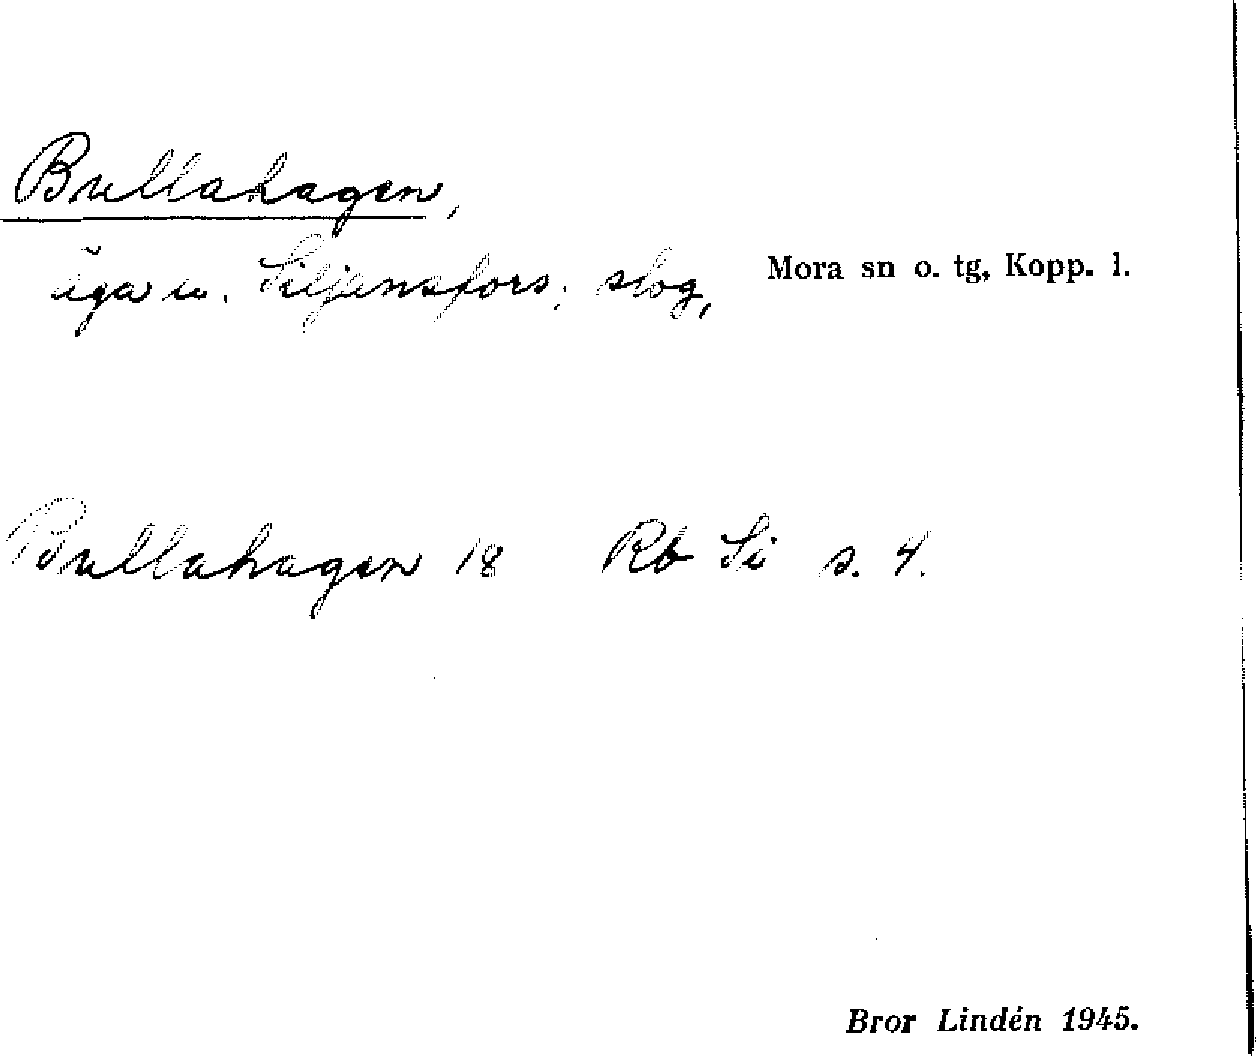 Bullahagen,
äga u. Siljensfors, slog, Mora sn o. tg, Kopp. l.
Bullahagen 18 Rb Si s. 4.
Bror Lindén 1945.